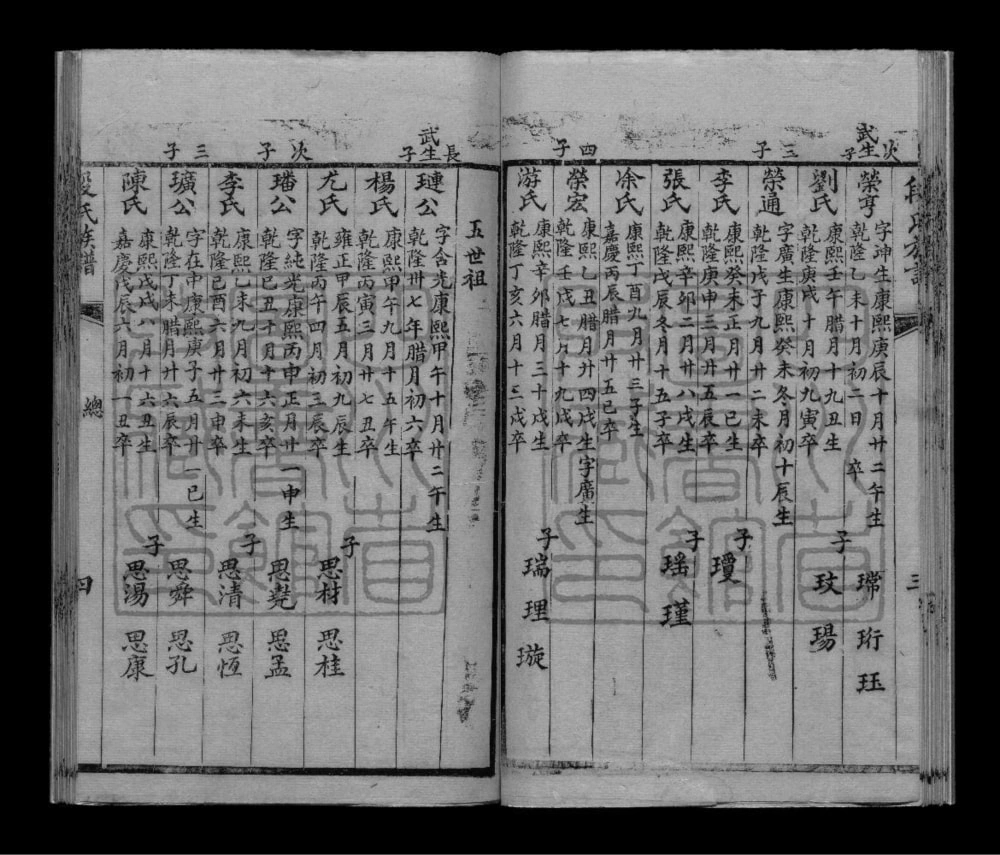 段氏族譜
三
次子
武生
榮亨
字坤生康熙庚辰十月廿二午生
乾隆乙未十月初二日卒
子
瑺 珩 珏
劉氏
康熙壬午腊月十九丑生
乾隆庚戌十月初九寅卒
子
玫 瑒
三子
榮通
字廣生康熙癸未冬月初十辰生
乾隆戊子九月廿二未卒
李氏
康熙癸未正月廿一巳生
乾隆庚申三月廿五辰卒
子
瓊
張氏
康熙辛卯二月廿八戌生
乾隆戊辰冬月十五子卒
子
瑶 瑾
余氏
康熙丁酉九月廿三子生
嘉慶丙辰腊月廿五巳卒
四子
榮宏
康熙乙丑腊月廿四戌生字廣生
乾隆壬戌七月十九戌卒
游氏
康熙辛卯腊月三十戌生
乾隆丁亥六月十三戌卒
子
瑞 理 璇
五世祖
長子
武生
璉公
字含光康熙甲午十月廿二午生
乾隆卅七年腊月初六卒
楊氏
康熙甲午九月十五午生
乾隆丙寅三月廿七丑卒
尤氏
雍正甲辰五月初九辰生
乾隆丙午四月初三辰卒
子
思材 思桂
次子
璠公
字純光康熙丙申正月廿一申生
乾隆己丑十月十六亥卒
思堯 思孟
李氏
康熙乙未九月初六未生
乾隆己酉六月廿三申卒
子
思清 思恆
三子
璌公
字在中康熙庚子五月廿一巳生
乾隆丁未腊月廿六辰卒
思舜 思孔
陳氏
康熙戊戌八月十六丑生
嘉慶戊辰六月初一丑卒
子
思湯 思康
段氏族譜
總
四